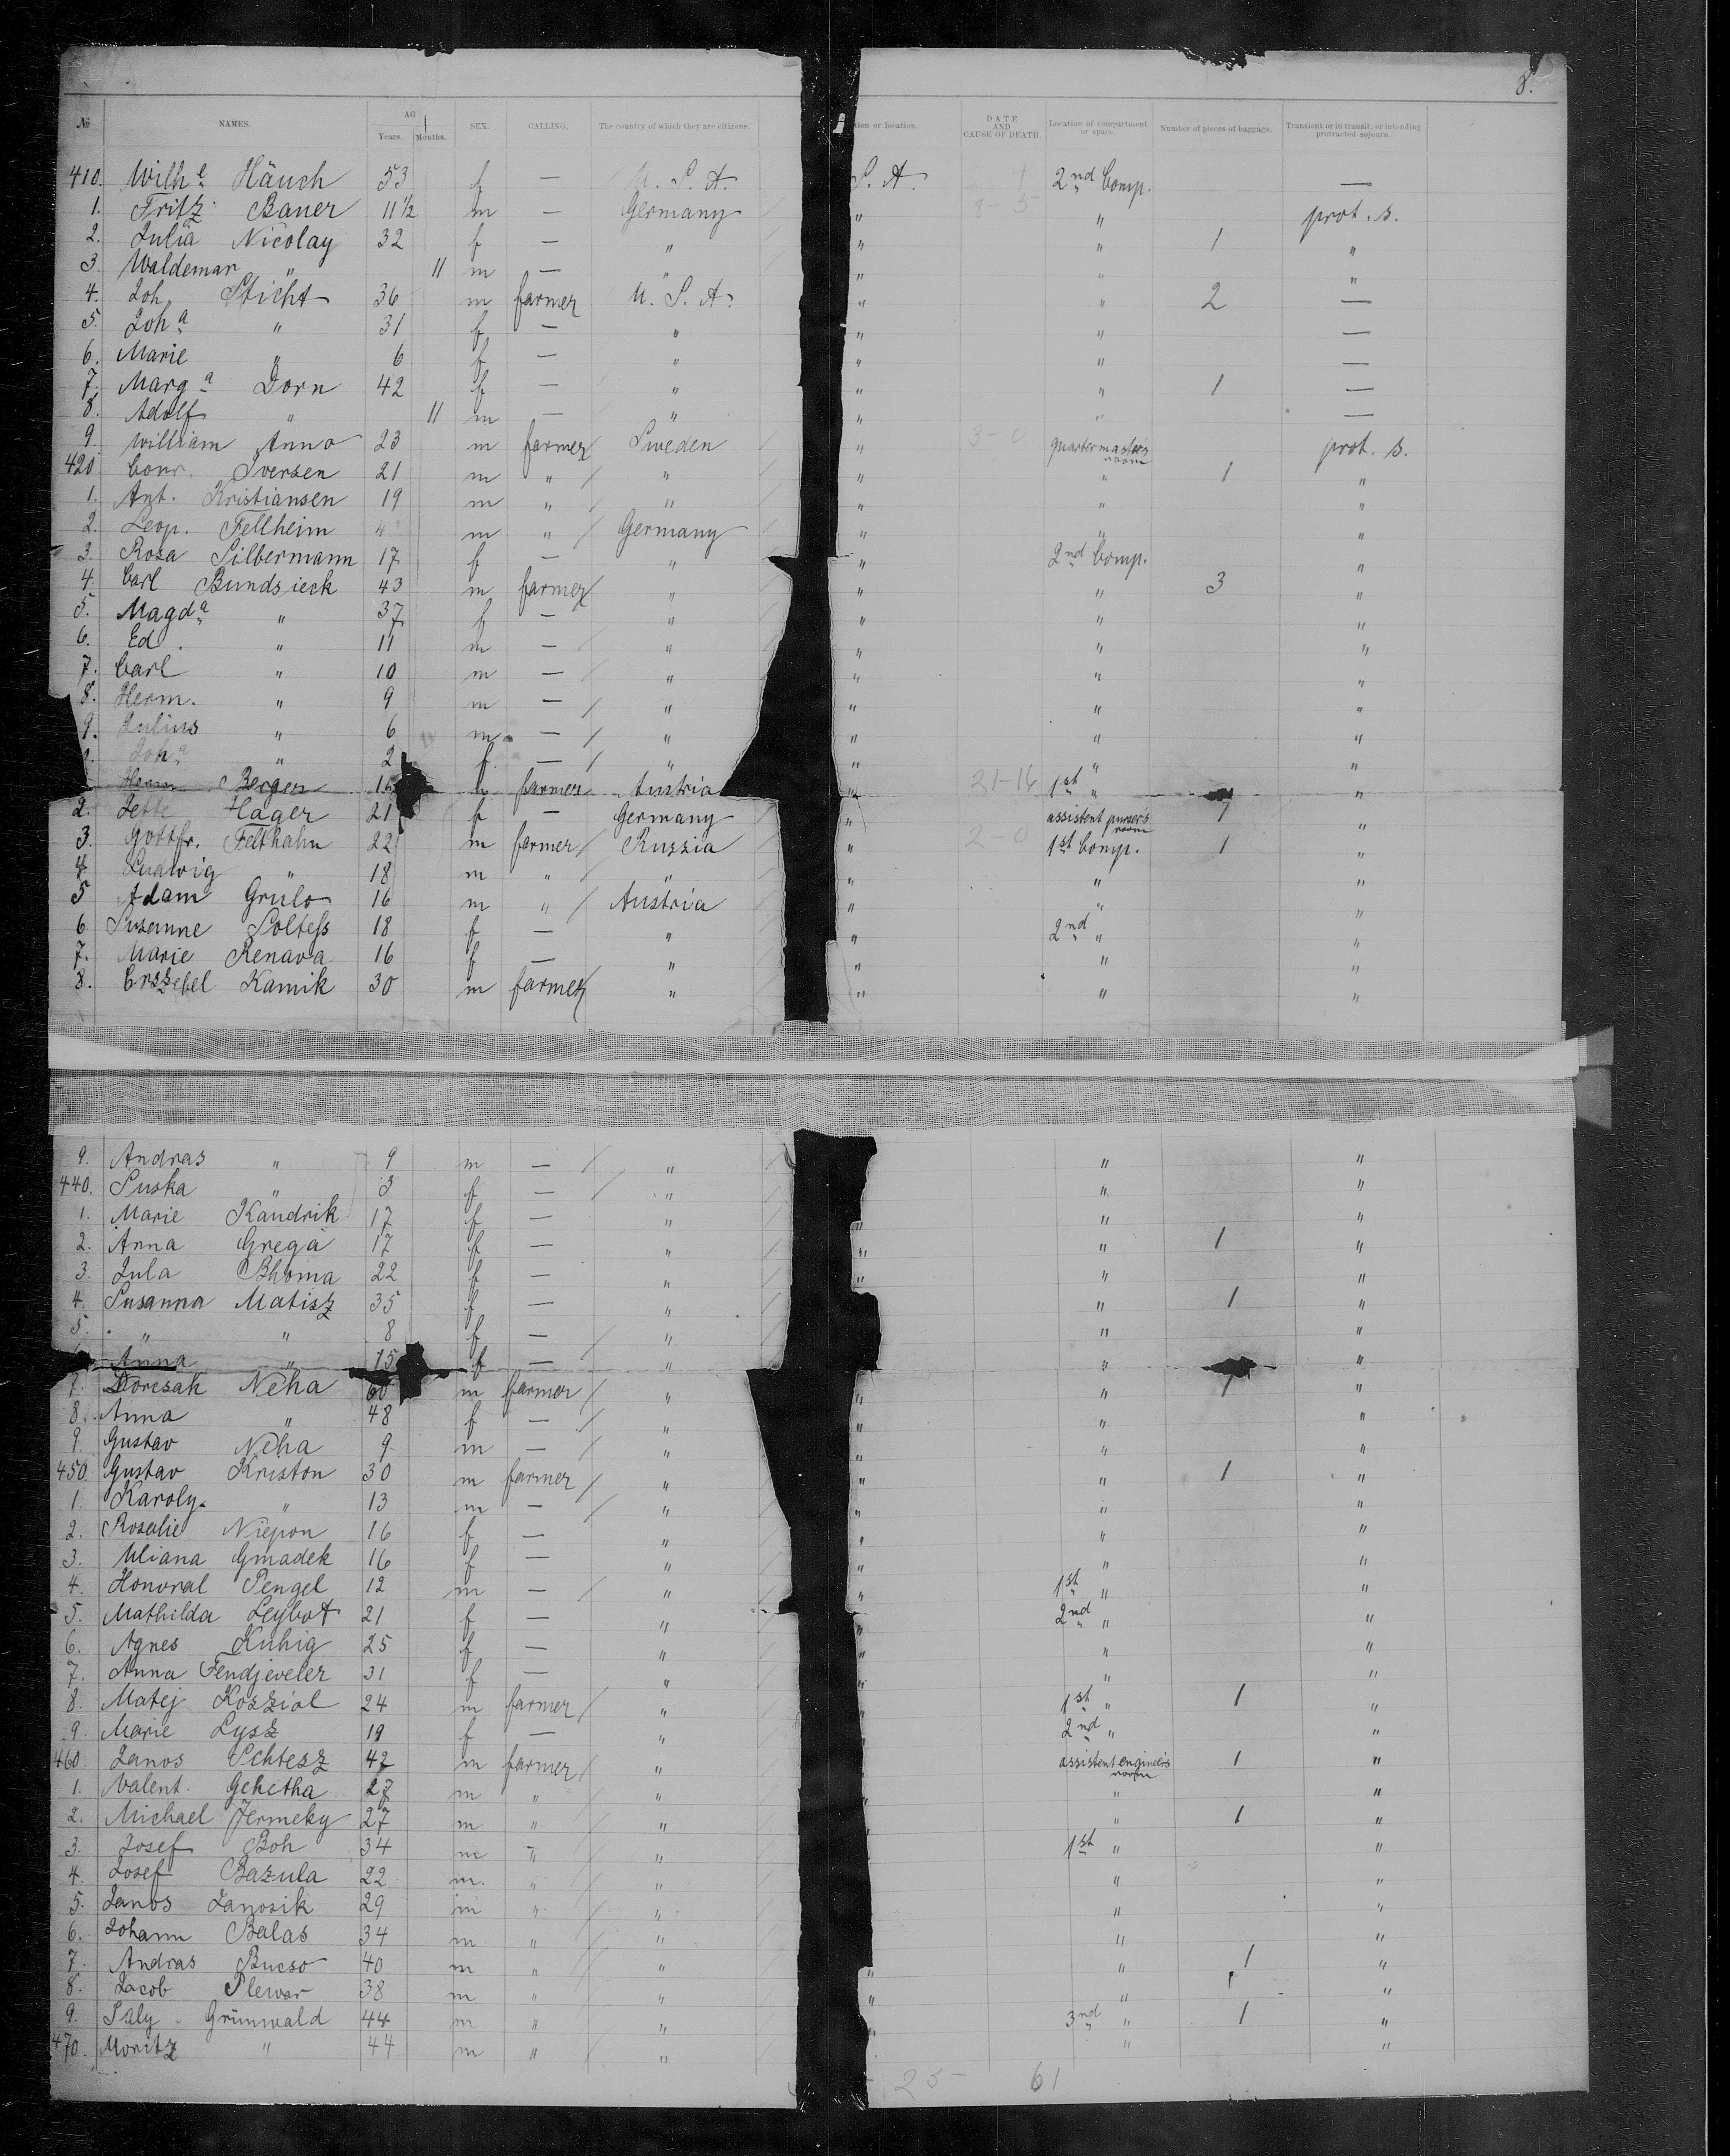 8.
No. NAMES. AG Years. Months. SEX. CALLING. The country of which they are citizens. tion or location. DATE AND CAUSE OF DEATH. Location of compartment or space. Number of pieces of baggage. Transient or in transit, or intending protracted sojourn.
410. Wilhe Häuch 53 f — U. S. A. S. A. 2nd Comp. —
1. Fritz Bauer 11 1/2 m — Germany " 8-5 " prot. s.
2. Julia Nicolay 32 f — " " " 1 "
3. Waldemar " 11 m — " " " "
4. Joh. Sticht 36 m farmer U. S. A. " " 2 —
5. Joha " 31 f — " " " —
6. Marie " 6 f — " " " —
7. Marga Dorn 42 f — " " " 1 —
8. Adolf " 11 m — " " " —
9. William Anno 23 m farmer Sweden " 3-0 quartermaster's room prot. s.
420 Conr. Iversen 21 m " " " " 1 "
1. Ant. Kristiansen 19 m " " " " "
2. Leop. Fellheim m " Germany " " "
3. Rosa Silbermann 17 f — " " 2nd Comp. "
4. Carl Bundsieck 43 m farmer " " " 3 "
5. Magda " 37 f — " " " "
6. Ed. " 11 m — " " " "
7. Carl " 10 m — " " " "
8. Herm. " 9 m — " " " "
9. Julius " 6 m — " " " "
Joha " 2 f — " " " "
Herm Bergen 16 farmer Austria " 21-16 1st " "
2. Jette Hager 21 f — Germany " assistent purser's room 1 "
3. Gottfr. Felthahn 22 m farmer Russia " 2-0 1st Comp. 1 "
4 Ludwig " 18 m " " " " "
5 Adam Grulo 16 m " Austria " " "
6 Susanne Soltess 18 f — " " 2nd " "
7. Marie Renava 16 f — " " " "
8. Erszebel Kamik 30 m farmer " " " "
9. Andras " 9 m — " " "
440. Suska " 3 f — " " "
1. Marie Kandrik 17 f — " " " "
2. Anna Grega 17 f — " " " 1 "
3. Jula Bhoma 22 f — " " " "
4. Susanna Matisz 35 f — " " 1 "
5. " " 8 f — " " "
Anna " 15 f — " " "
7. Dorcsak Neha 60 m farmer " " " 1 "
8. Anna " 48 f — " " " "
9. Gustav Neha 9 m — " " " "
450 Gustav Kriston 30 m farmer " " " 1 "
1. Karoly " 13 m — " " " "
2. Rosalie Niepon 16 f — " " " "
3. Uliana Gmadek 16 f — " " " "
4. Honoral Pengel 12 m — " " 1st " "
5. Mathilda Leybot 21 f — " " 2nd " "
6. Agnes Kuhig 25 f — " " " "
7. Anna Fendjeveler 31 f — " " " "
8. Matej Koszial 24 m farmer " " 1st " 1 "
9. Marie Lysz 19 f — " " 2nd " "
460. Janos Schtesz 42 m farmer " " assistent engineer's room 1 "
1. Valent. Gehetha 27 m " " " " "
2. Michael Jermeky 27 m " " " " 1 "
3. Josef Boh 34 m " " 1st " "
4. Josef Bazula 22 m. " " " "
5. Janos Janosik 29 m " " " "
6. Johann Balas 34 m " " " "
7. Andras Bucso 40 m " " " " 1 "
8. Jacob Plewar 38 m " " " " 1 "
9. Saly Grünwald 44 m " " 3nd " 1 "
470. Moritz " 44 m " " " "
25- 61